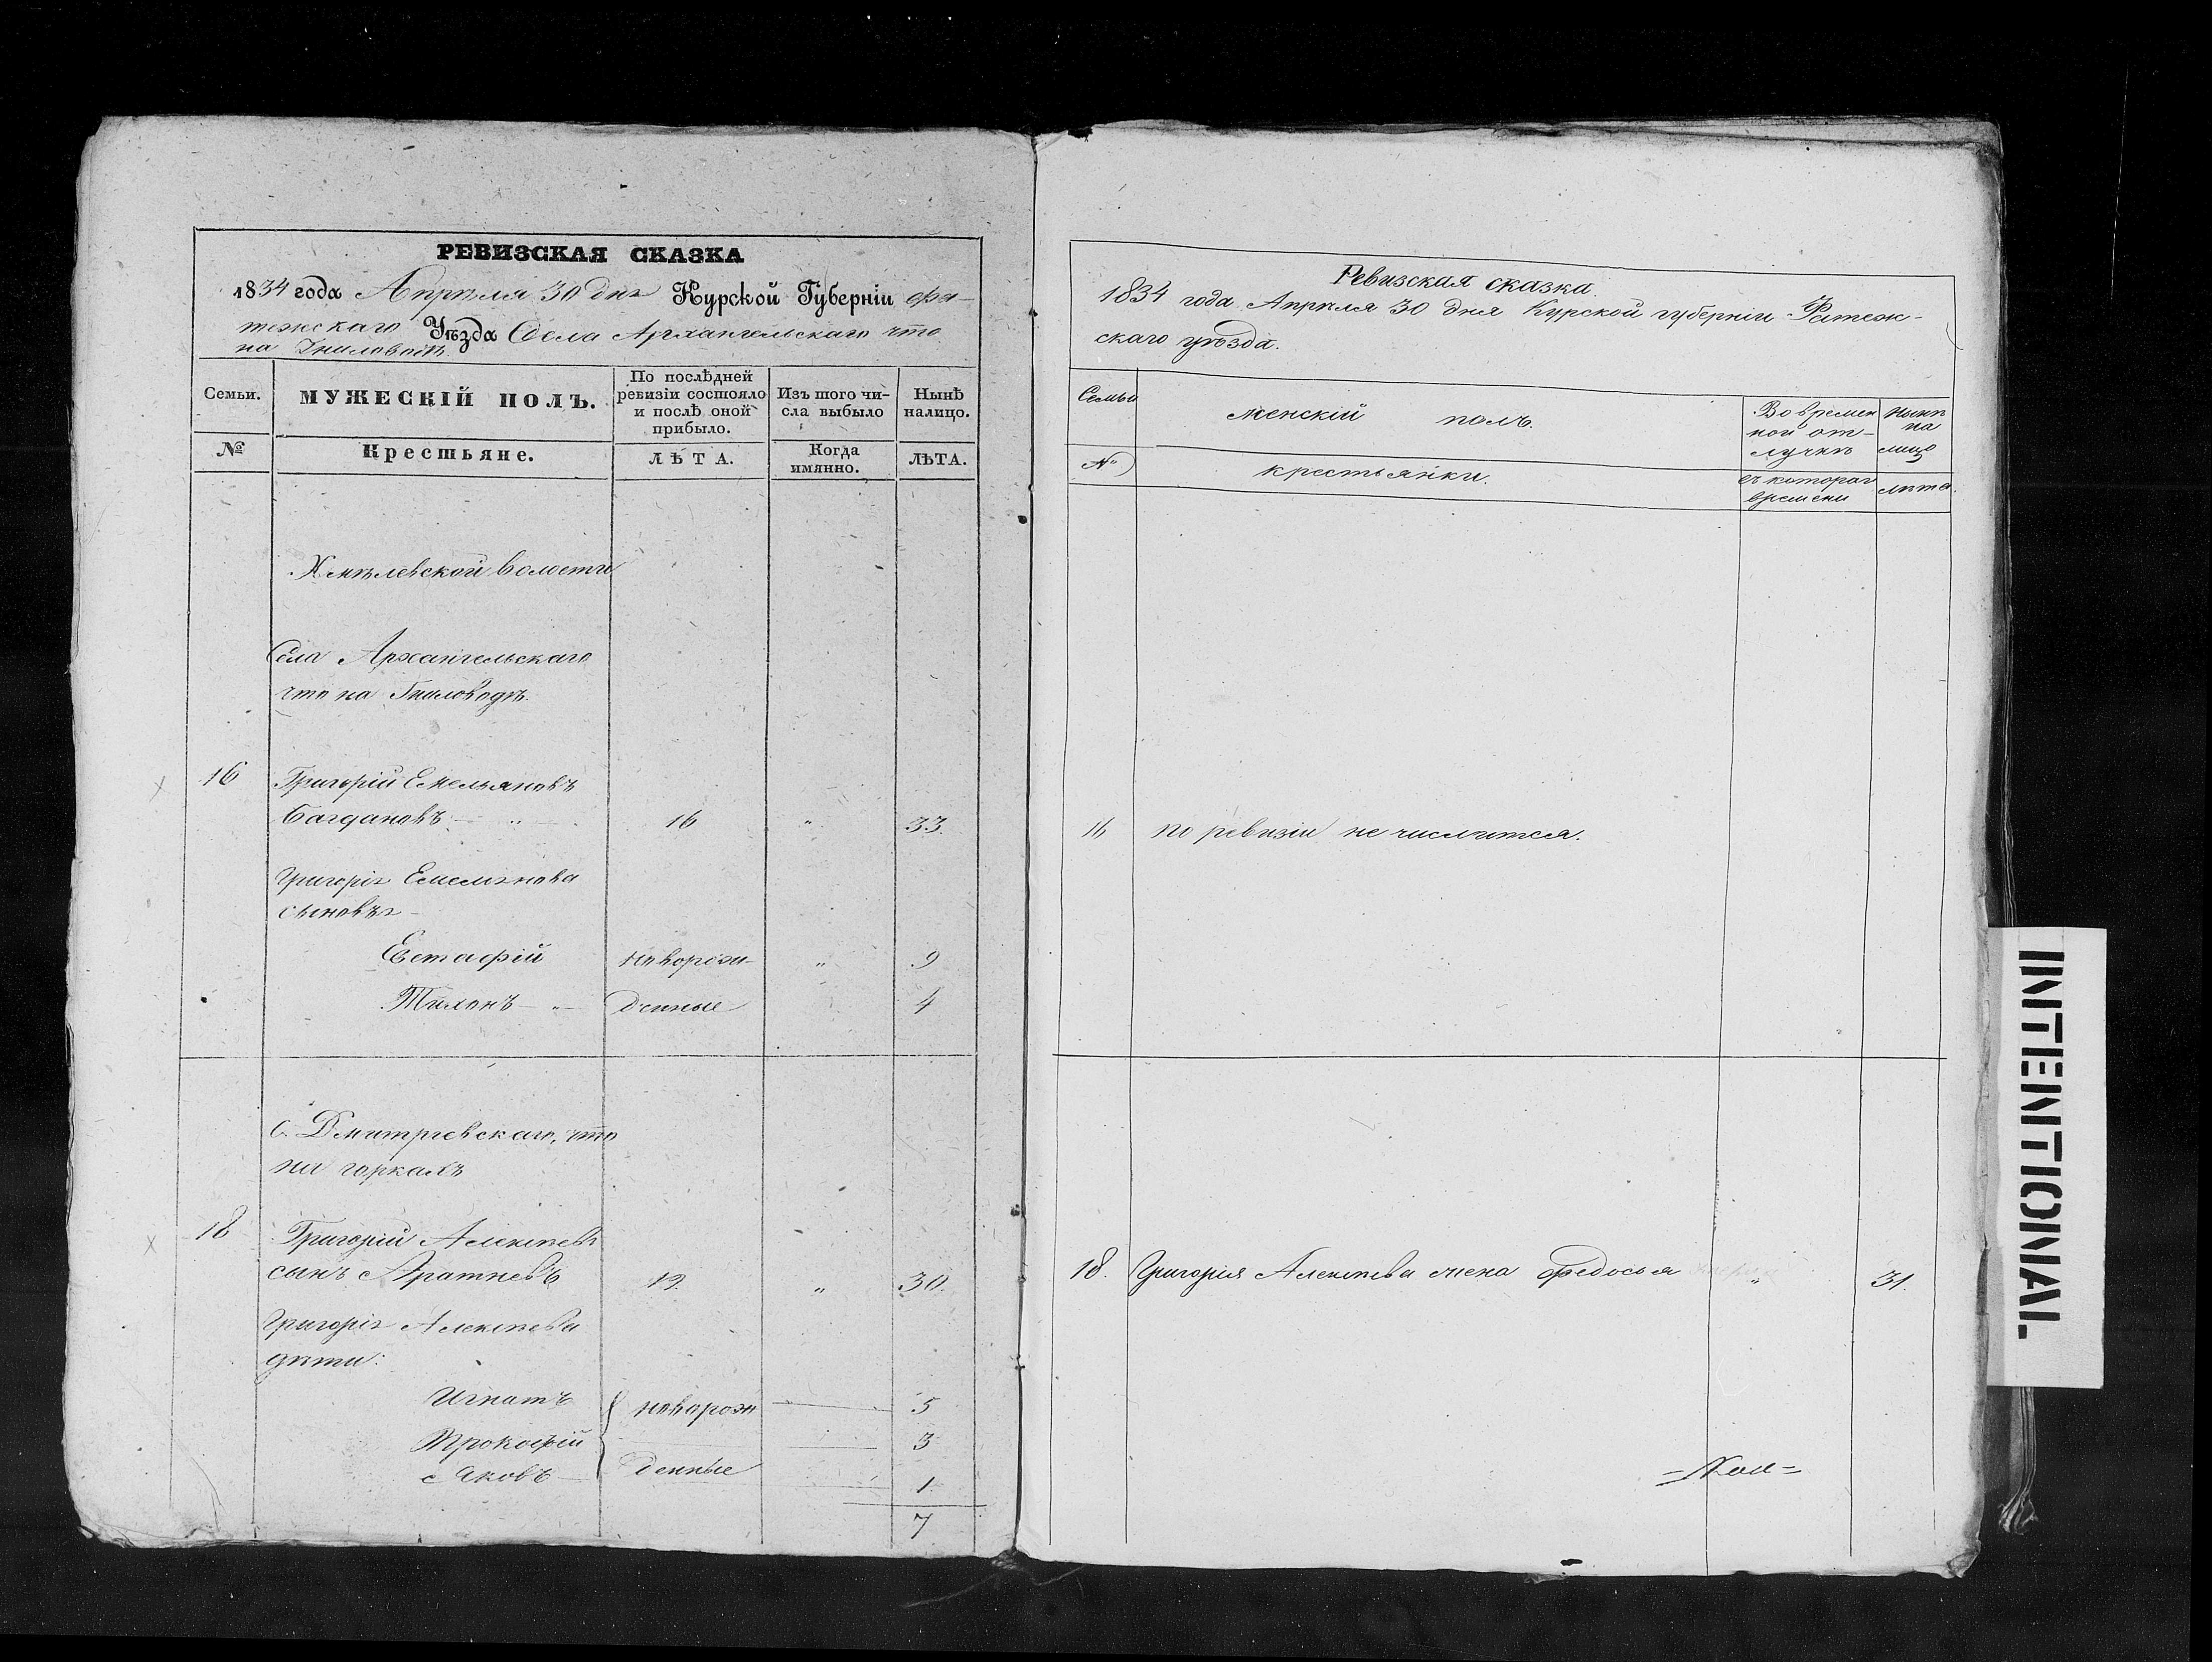 РЕВИЗСКАЯ СКАЗКА
1834 года Апрѣля 30 дня Курской Губерніи Фа-
тежскаго Уѣзда Села Архангельскаго что
на Гниловодѣ
Семьи. МУЖЕСКІЙ ПОЛЪ. По послѣдней ревизіи состояло и послѣ оной прибыло. Изъ того числа выбыло Нынѣ налицо.
№ Крестьяне. ЛѢТА. Когда имянно. ЛѢТА.
Хмѣлевской волости
Села Архангельскаго
что на Гниловодѣ.
16 Григорій Емельяновъ
Багдановъ — „ — 16 „ 33.
Григорія Емельянова
сыновья —
Евстафій новорож- „ 9
Тихонъ — „ — денные 4
С. Дмитріевскаго, что
на горкахъ
18 Григорій Алексѣевъ
сынъ 12. „ 30.
Григорія Алексѣева
дѣти:
Игнатъ новорож 5
Прокофій 3
Яковъ — денные 1
7
Ревизская сказка.
1834 года Апрѣля 30 дня Курской губерніи Фатеж-
скаго уѣзда.
Семьи женскій полъ. Во времен ной от- лучкѣ Нынѣ на лицо
№ крестьянки. съ котораго времени лѣта.
16 по ревизіи не числится.
18. Григорія Алексѣева жена Федосья „ 31.
INTENTIONAL